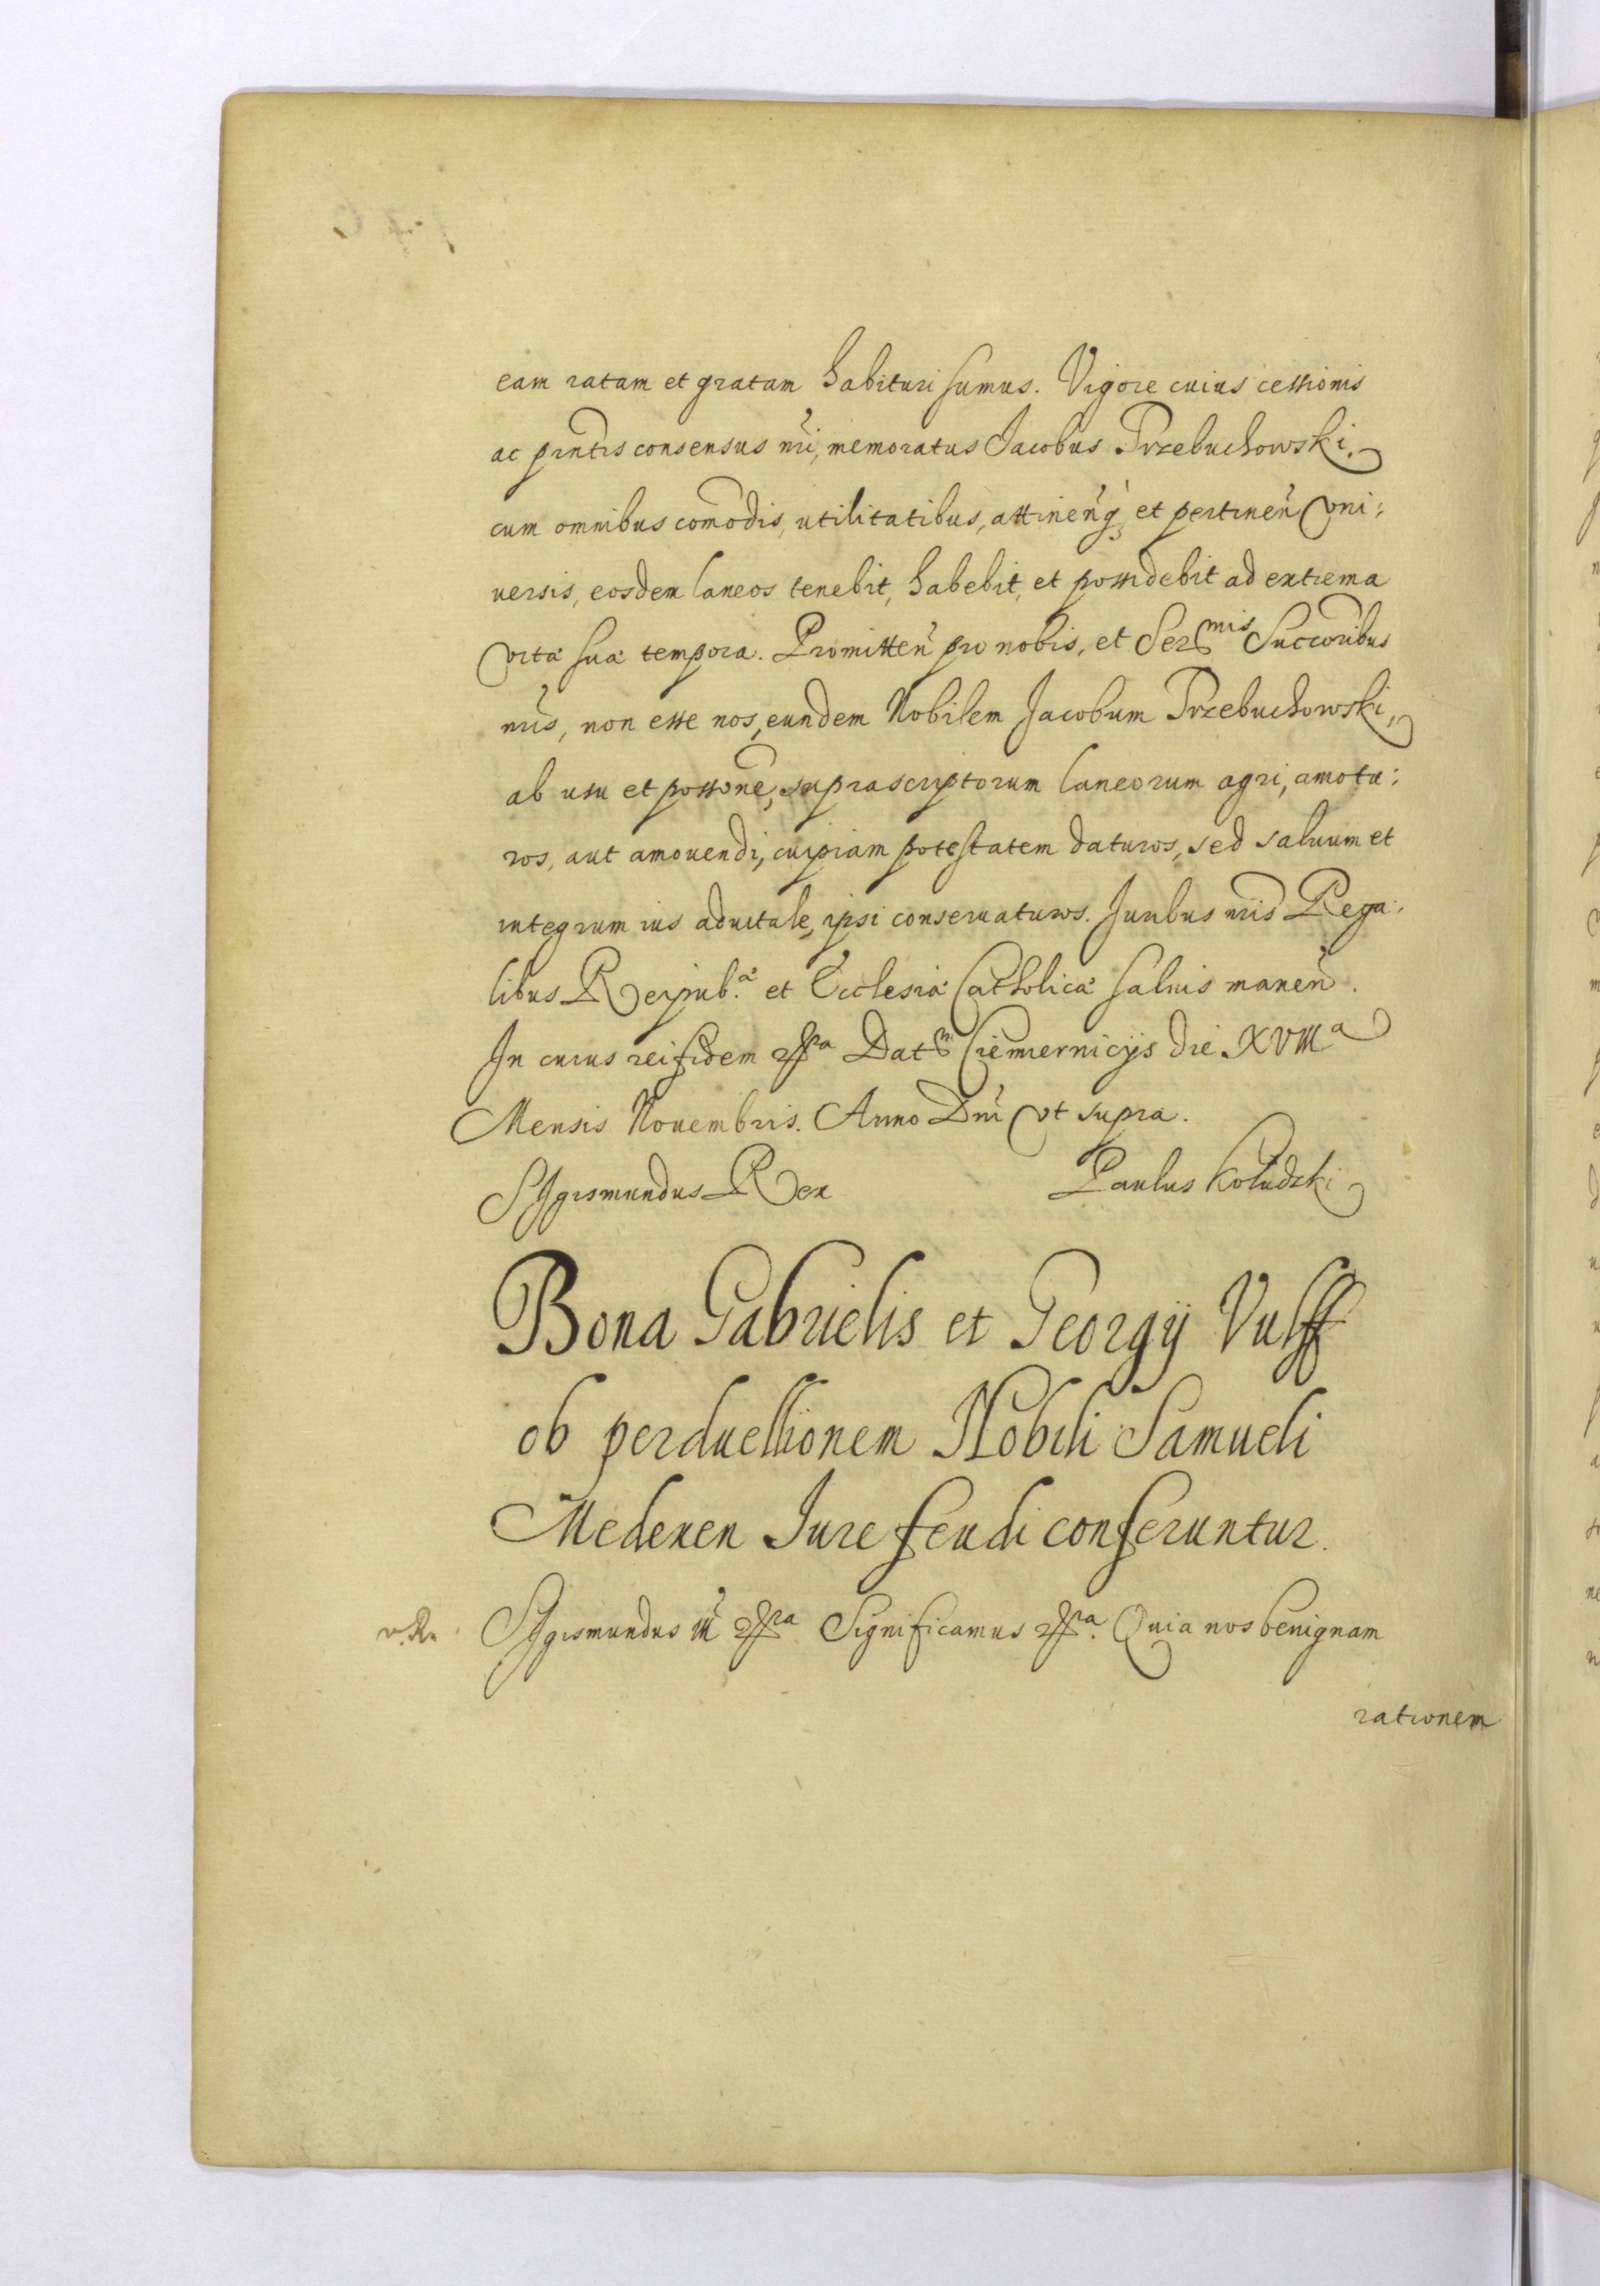 eam ratam et gratam habituri sumus. Vigore cuius cessionis
ac pntis consensus nri, memoratus Jacobus Trzebuchowski,
cum omnibus comodis, utilitatibus, attinen q, et pertinen uni:
versis, eosdem laneos tenebit, habebit, et possidebit ad extrema
vitæ suæ tempora. Promitten pro nobis, et Ser mis Succoribus
nris, non esse nos, eundem Nobilem Jacobum Trzebuchowski,
ab usu et possone, suprascriptorum laneorum agri, amotu:
ros, aut amouendi, cuipiam potestatem daturos, sed saluum et
integrum ius aduitale, ipsi conseruaturos. Juribus nris Rega:
libus Reipub.æ et Ecclesiæ Catholicæ saluis manen.
In cuius rei fidem Dat Ciemiernicijs die XVIIIa
Mensis Nouembris. Anno Dni vt supra.
Sigismundus Rex Paulus Koludzki
Bona Gabrielis et Georgij Vulff
ob perduellionem Nobili Samueli
Medexen Jure feudi conferuntur.
v. R. Sigismundus III Significamus Quia nos benignam
rationem